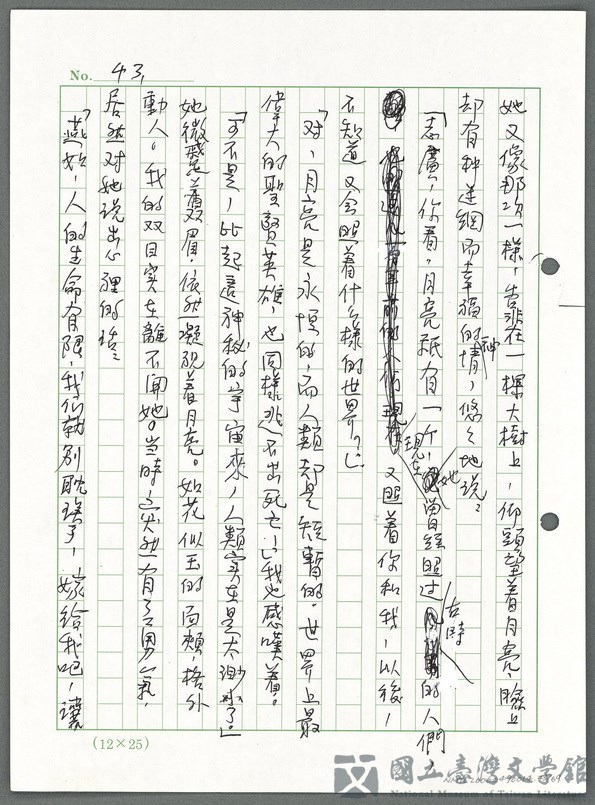 No. 43,
她又像那次一樣，靠在一棵大樹上，仰頭望着月亮，臉上
却有种迷綑而幸福的神情，悠悠地說：
「志廣，你看，月亮祇有一个，她曾經照过古時的人們，
現在又照着你和我，以後，
不知道又会照着什么樣的世界？」
「对，月亮是永恒的，而人類却是短暫的。世界上最
偉大的聖賢英雄，也同樣逃不出死亡。」我也感嘆着。
「可不是，比起這神秘的宇宙來，人類實在是太渺小了。」
她微蹙着双眉，依然凝視着月亮。如花似玉的面頰，格外
動人。我的双目實在離不開她。當時，突然有了勇氣，
居然对她說出心裡的話：
「燕如，人的生命有限，我们就別耽擱了，嫁給我吧，讓
(12×25)
國立臺灣文學館
National Museum of Taiwan Literature